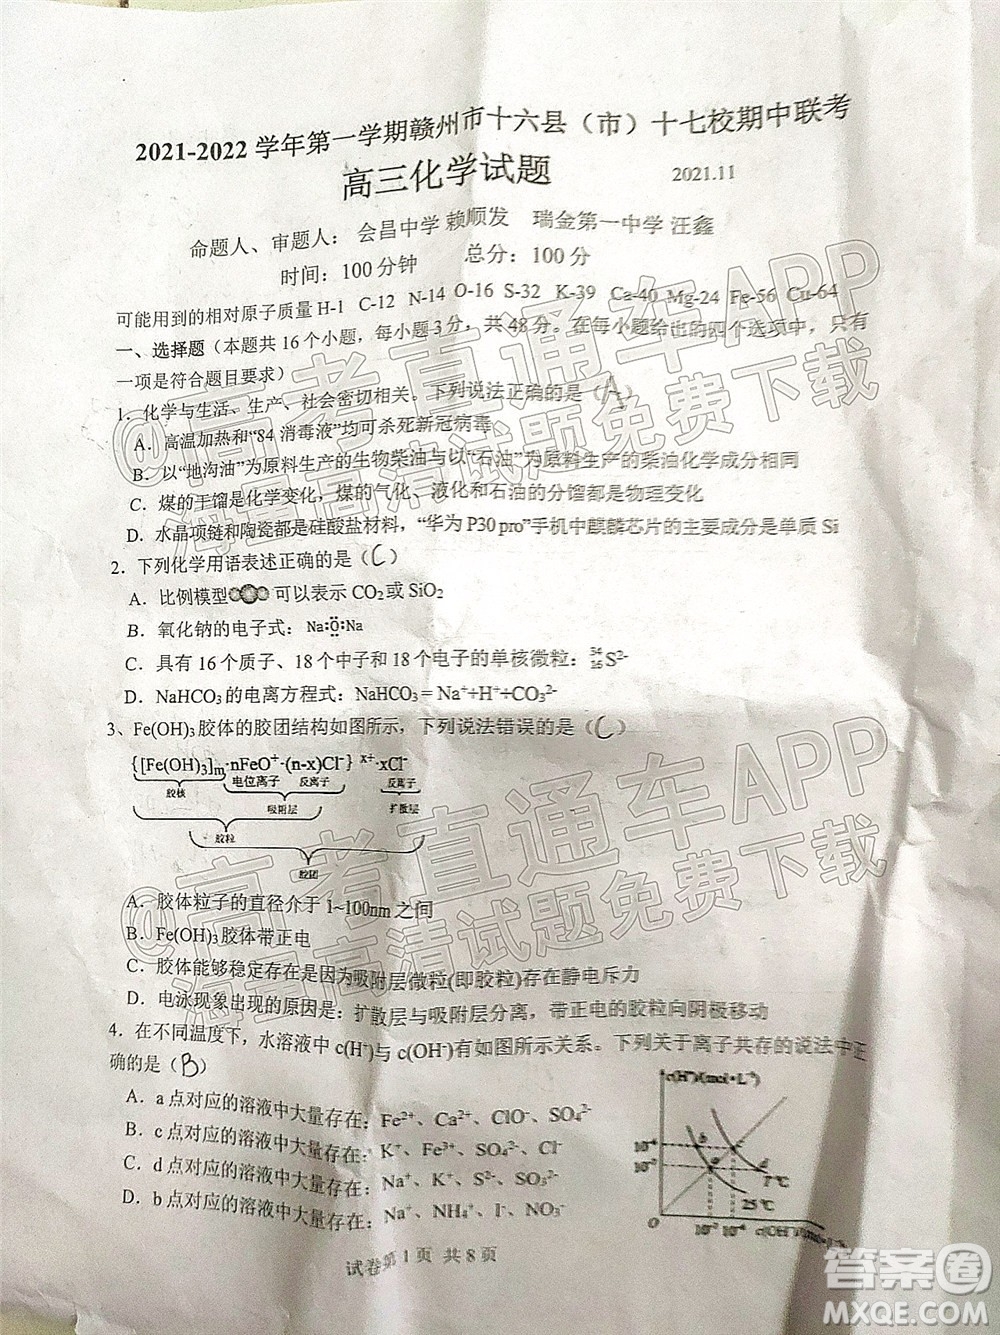 2021-2022 学年第一学期赣州市十六县（市）十七校期中联考
高三化学试题 2021.11
命题人、审题人：会昌中学 赖顺发 瑞金第一中学 汪鑫
时间：100 分钟 总分：100 分
可能用到的相对原子质量 H-1 C-12 N-14 O-16 S-32 K-39 Ca-40 Mg-24 Fe-56 Cu-64
一、选择题（本题共 16 个小题，每小题 3 分，共 48 分。在每小题给也的四个选项中，只有
一项是符合题目要求）
1．化学与生活、生产、社会密切相关。下列说法正确的是（A）
A．高温加热和“84 消毒液”均可杀死新冠病毒
B．以“地沟油”为原料生产的生物柴油与以“石油”为原料生产的柴油化学成分相同
C．煤的干馏是化学变化，煤的气化、液化和石油的分馏都是物理变化
D．水晶项链和陶瓷都是硅酸盐材料，“华为 P30 pro”手机中麒麟芯片的主要成分是单质 Si
2．下列化学用语表述正确的是（C）
A．比例模型 可以表示 CO₂或 SiO₂
B．氧化钠的电子式：Na:Ö:Na
C．具有 16 个质子、18 个中子和 18 个电子的单核微粒：³⁴₁₆S²⁻
D．NaHCO₃的电离方程式：NaHCO₃ = Na⁺+H⁺+CO₃²⁻
3、Fe(OH)₃胶体的胶团结构如图所示，下列说法错误的是（C）
{[Fe(OH)₃]m·nFeO⁺·(n-x)Cl⁻} ˣ⁺·xCl⁻
胶核 电位离子 反离子 反离子
吸附层 扩散层
胶粒
胶团
A．胶体粒子的直径介于 1~100nm 之间
B．Fe(OH)₃胶体带正电
C．胶体能够稳定存在是因为吸附层微粒(即胶粒)存在静电斥力
D．电泳现象出现的原因是：扩散层与吸附层分离，带正电的胶粒向阴极移动
4．在不同温度下，水溶液中 c(H⁺)与 c(OH⁻)有如图所示关系。下列关于离子共存的说法中正
确的是（B）
A．a 点对应的溶液中大量存在：Fe²⁺、Ca²⁺、ClO⁻、SO₄²⁻
B．c 点对应的溶液中大量存在：K⁺、Fe³⁺、SO₄²⁻、Cl⁻
C．d 点对应的溶液中大量存在：Na⁺、K⁺、S²⁻、SO₃²⁻
D．b 点对应的溶液中大量存在：Na⁺、NH₄⁺、I⁻、NO₃⁻
c(H⁺)/(mol•L⁻¹)
10⁻⁶
10⁻⁷
b
a
c
d
T ℃
25 ℃
O
10⁻⁷ 10⁻⁶
试卷第 1 页 共 8 页
@高考直通车APP
海量高清试题免费下载
@高考直通车APP
海量高清试题免费下载
答案圈
MXQE.COM